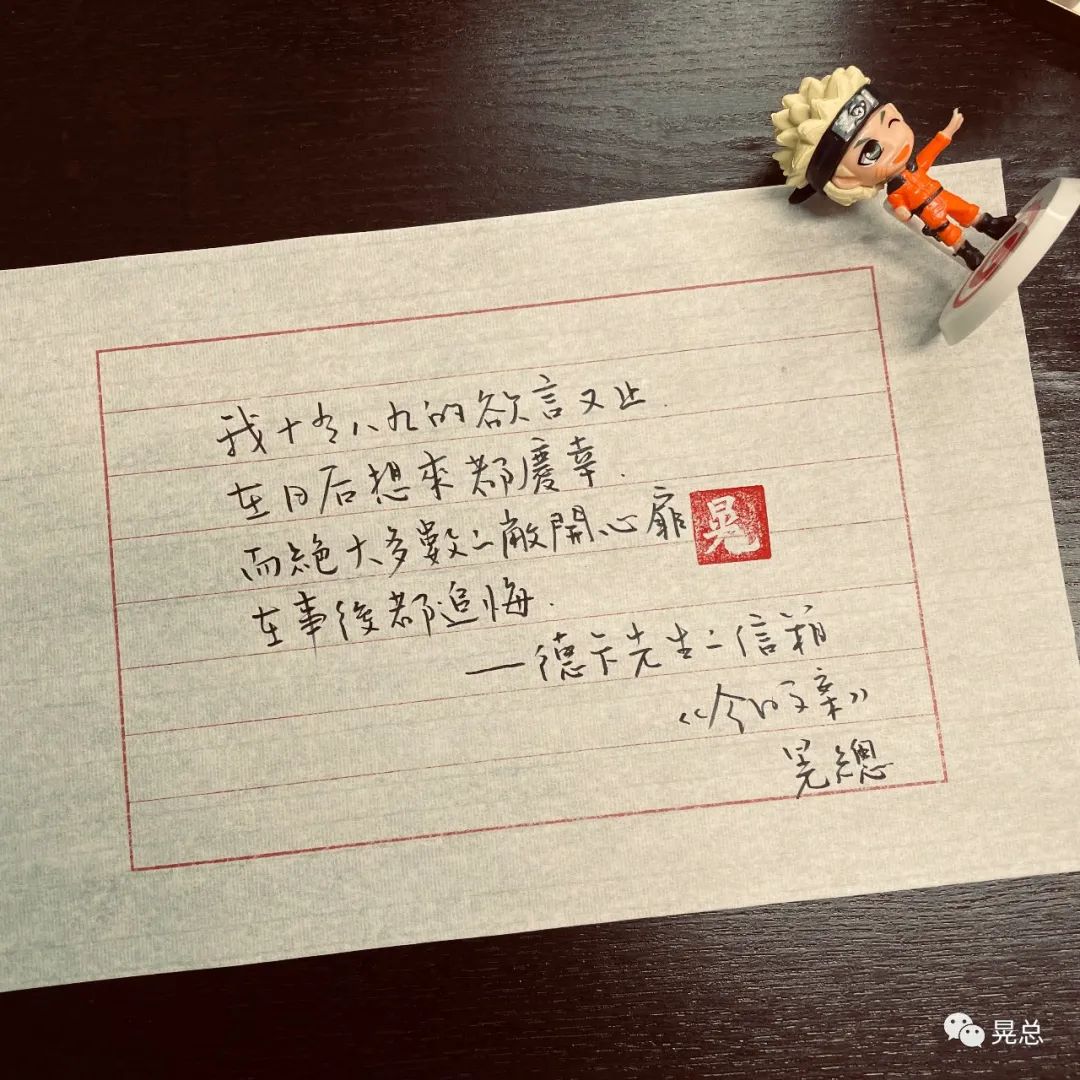 我十有八九的欲言又止.
在日后想來都慶幸.
而絕大多數之敞開心扉
晃
在事後都追悔.
—德卡先生之信箱
《今日文案》
晃總
晃总